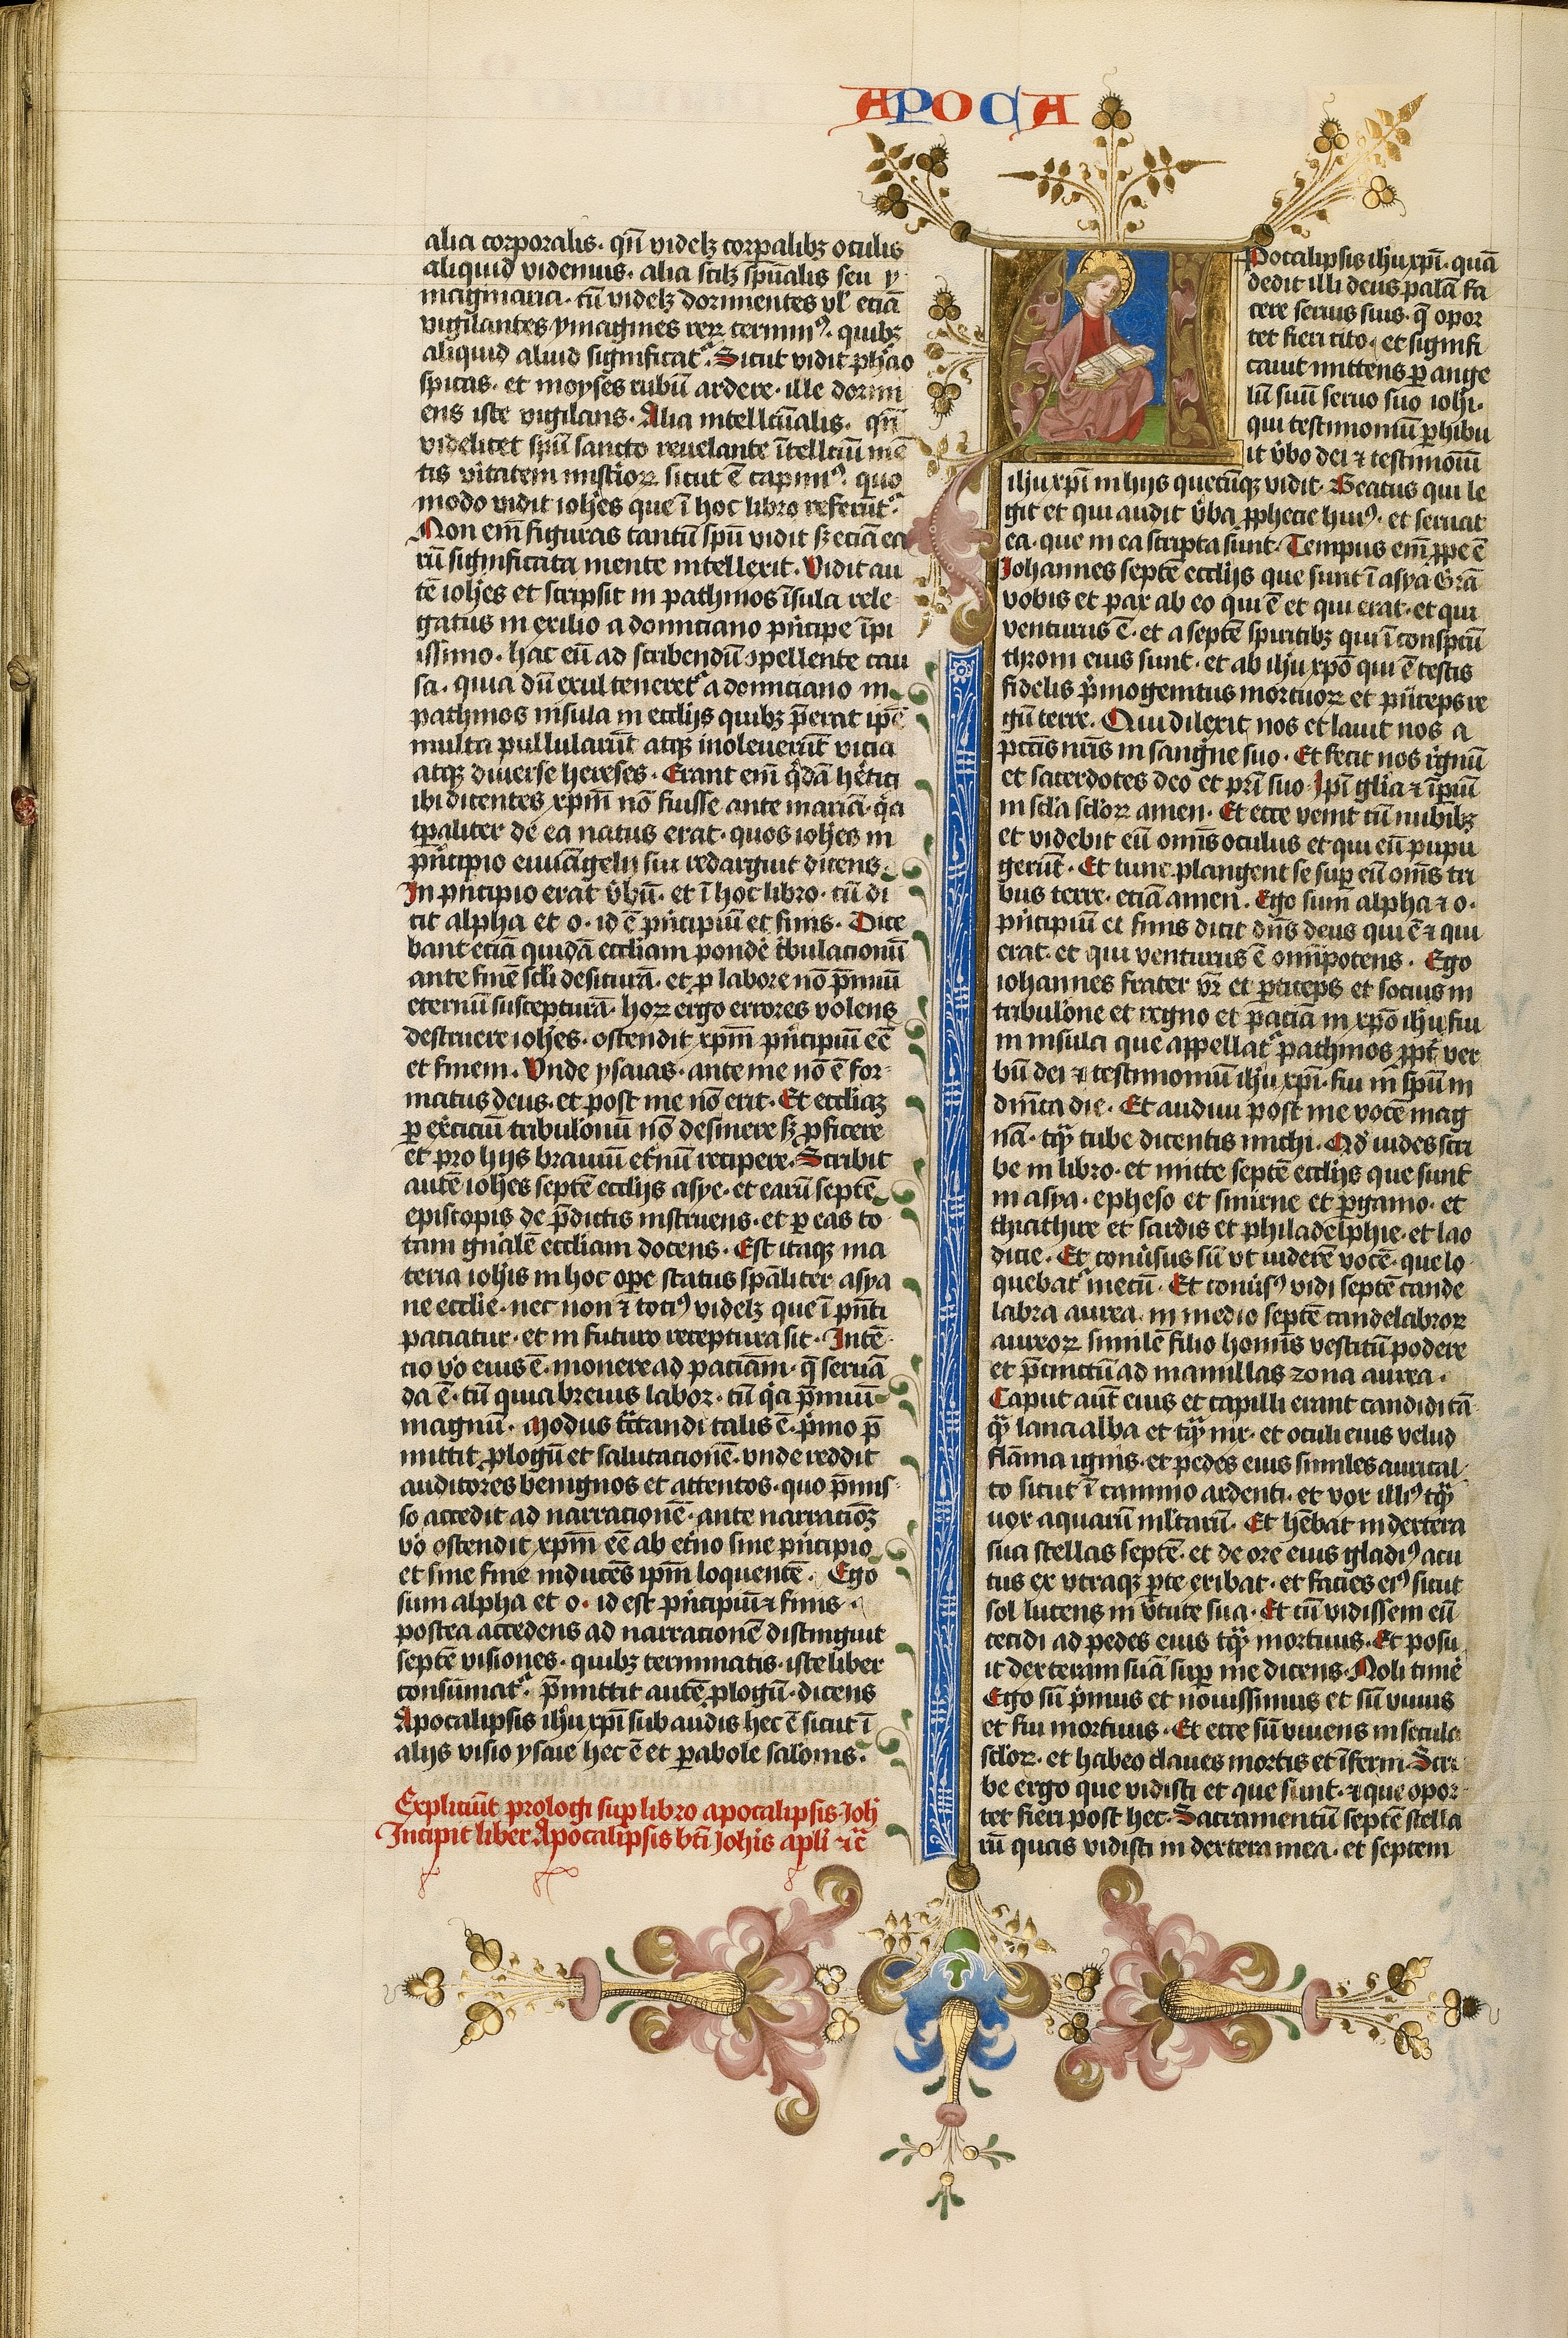 APOCA
alia corporalis. qn̄ videlꝫ corꝑalibꝫ oculis
aliquid videmus. alia scilꝫ spūalis seu y
maginaria. cū videlꝫ dormientes vl' eciā
vigilantes ymagines reꝝ cernimꝰ. quibꝫ
aliquid aliud significat᷑. Sicut vidit phāo
spicas. et moyses rubū ardere. ille dormi
ens iste vigilans. Alia intellcūalis. qn̄
videlicet spū sancto reuelante ītellcū mē
tis v̄itatem mistioꝝ sicut ē capimꝰ. quo
modo vidit ioh̄es que ī hoc libro referūt᷑.
Non em̄ figuras tantū spū vidit sꝫ eciā ea
rū significata mente intellexit. Vidit au
tē ioh̄es et scripsit in pathmos īsula rele
gatus in exilio a domiciano pͥncipe īpi
issimo. hac eū ad scribendū ꝯpellente cau
sa. quia dū exul teneret᷑ a domiciano in
pathmos insula in eccl̄ijs quibꝫ p̄erat ip̄e
multa pullularūt atqꝫ inoleuerūt vicia
atqꝫ diuerse hereses. Erant em̄ qͥdā hētici
ibi dicentes xpm̄ nō fuisse ante mariā. qͥa
tꝑaliter de ea natus erat. quos ioh̄es in
pͥncipio euuāgelij sui redarguit dicens.
In pͥncipio erat v̄bū. et ī hoc libro. cū di
cit alpha et o. id ē pͥncipiū et finis. Dice
bant eciā quidā eccl̄iam pondē tͥbulacionū
ante finē scl̄i desiturā. et ꝓ labore nō p̄miū
eternū suscepturā. hoꝝ ergo errores volens
destruere ioh̄es. ostendit xpm̄ pͥncipiū eē
et finem. Vnde ysaias. ante me nō ē for
matus deus. et post me nō erit. Et eccl̄iaꝫ
ꝑ ex̄citiū tribulonū nō desinere sꝫ ꝓficere
et pro hijs brauiū et̄nū recipere. Scribit
autē ioh̄es septē eccl̄ijs asye. et earū septē
episcopis de p̄dictis instruens. et ꝑ eas to
tam gn̄alē eccl̄iam docens. Est itaqꝫ ma
teria ioh̄is in hoc oꝑe status spāliter asya
ne eccl̄ie. nec non ⁊ tociꝰ videlꝫ que ī pn̄ti
paciatur. et in futuro receptura sit. Intē
cio v̊o eius ē. monere ad paciām. q̄ seruā
da ē. tū quia breuis labor. tū qͥa p̄miū
magnū. Modus tͣctandi talis ē. pͥmo p̄
mittit ꝓlogū et salutacionē. vnde reddit
auditores benignos et attentos. quo p̄mis
so accedit ad narracionē. ante narracōꝫ
v̊o ostendit xpm̄ eē ab et̄no sine pͥncipio
et sine fine inducēs ip̄m loquentē. Ego
sum alpha et o. id est pͥncipiū ⁊ finis.
postea accedens ad narracionē distinguit
septē visiones. quibꝫ terminatis. iste liber
consūmat᷑. p̄mittit autē ꝓlogū. dicens
Apocalipsis ih̄u xpī subaudis hec ē sicut ī
alijs visio ysaie hec ē et ꝑabole saloīs.
Expliciūt prologi suꝑ libro apocalipsis Joh̄
Incipit liber Apocalipsis bt̄i Joh̄is apl̄i ⁊c̄
Apocalipsis ih̄u xpī. quā
dedit illi deus palā fa
cere seruis suis. q̄ opor
tet fieri cito. et signifi
cauit mittens ꝑ ange
lū suū seruo suo ioh̄i.
qui testimoniū ꝑhibu
it v̄bo dei ⁊ testimoīū
ih̄u xpī in hijs quecūqꝫ vidit. Beatus qui le
git et qui audit v̄ba ꝓphecie huiꝰ. et seruat
ea. que in ea scripta sunt. Tempus em̄ ꝓpe ē
Johannes septē eccl̄ijs que sunt ī asya Grā
vobis et pax ab eo qui ē et qui erat. et qui
venturus ē. et a septē spiritibꝫ qui ī conspcū
throni eius sunt. et ab ih̄u xpō qui ē testis
fidelis pͥmogenitus mortuoꝝ et pͥnceps re
gū terre. Qui dilexit nos et lauit nos a
pctīs nr̄is in sangͥne suo. Et fecit nos rͤgnū
et sacerdotes deo et prī suo Ipī glīa ⁊ īpiū
in scl̄a scl̄oꝝ amen. Et ecce venit cū nubibꝫ
et videbit eū omīs oculus et qui eū pupu
gerūt. Et tunc plangent se suꝑ eū om̄s tri
bus terre. eciā amen. Ego sum alpha ⁊ o.
pͥncipiū et finis dicit dn̄s deus qui ē ⁊ qui
erat. et qui venturus ē om̄ipotens. Ego
iohannes frater vr̄ et ꝑticeps et socius in
tribulōne et regno et paciā in xpō ih̄u fui
in insula que appellat᷑ pathmos ꝓpt̄ ver
bū dei ⁊ testimoniū ih̄u xpī. fui in spū in
dn̄ica die. Et audiui post me vocē mag
nā. tqͣꝫ tube dicentis michi. Qd̄ uides scri
be in libro. et mitte septē eccl̄ijs que sunt
in asya. epheso et smirne et ꝑgamo. et
thiathire et sardis et philadelphie. et lao
dicie. Et conūsus sū vt uiderē vocē. que lo
quebat᷑ mecū. Et conūsꝰ vidi septē cande
labra aurea. in medio septē candelabroꝝ
aureoꝝ similē filio homīs vestitū podere
et p̄cinctū ad mamillas zona aurea.
Caput aut̄ eius et capilli erant candidi tā
qͣꝫ lana alba et tqͣꝫ nix. et oculi eius velud
flāma ignis. et pedes eius similes aurical
co sicut ī camino ardenti. et vox illiꝰ tqͣꝫ
uox aquarū mltarū. Et hēbat in dextera
sua stellas septē. et de ore eius gladiꝰ acu
tus ex vtraqꝫ ꝑte exibat. et facies eiꝰ sicut
sol lucens in v̄tute sua. Et cū vidissem eū
cecidi ad pedes eius tqͣꝫ mortuus. Et posu
it dexteram suā suꝑ me dicens. Noli timē
Ego sū pͥmus et nouissimus et sū viuus
et fui mortuus. Et ecce sū viuens in secula
scl̄oꝝ. et habeo claues mortis et īferni. Scri
be ergo que vidisti et que sunt. ⁊ que opor
tet fieri post hec. Sacramentū septē stella
rū quas vidisti in dextera mea. et septem